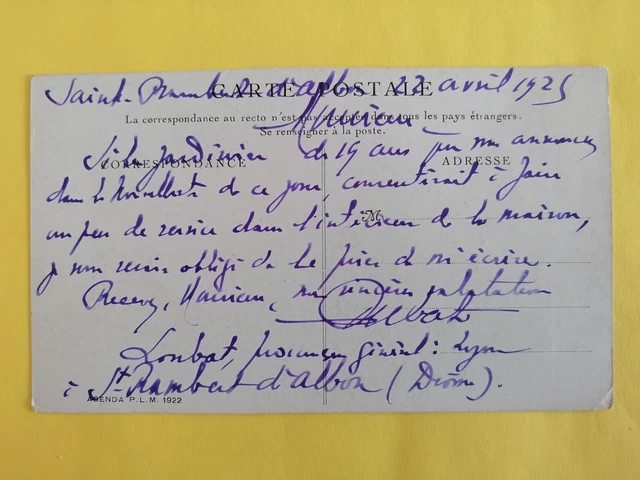 Saint-Rambert d'Albon 22 avril 1925
CARTE POSTALE
La correspondance au recto n'est pas acceptée dans tous les pays étrangers.
Se renseigner à la poste.
Monsieur
CORRESPONDANCE
ADRESSE
Si le jardinier de 19 ans que vous annoncez
dans le Nouvelliste de ce jour, consentirait à faire
M
un peu de service dans l'intérieur de la maison,
je vous serais obligé de le prier de m'écrire.
Recevez, Monsieur, mes sincères salutations
Loubat
Loubat, procureur général : Lyon
à St Rambert d'Albon (Drôme).
AGENDA P.L.M. 1922